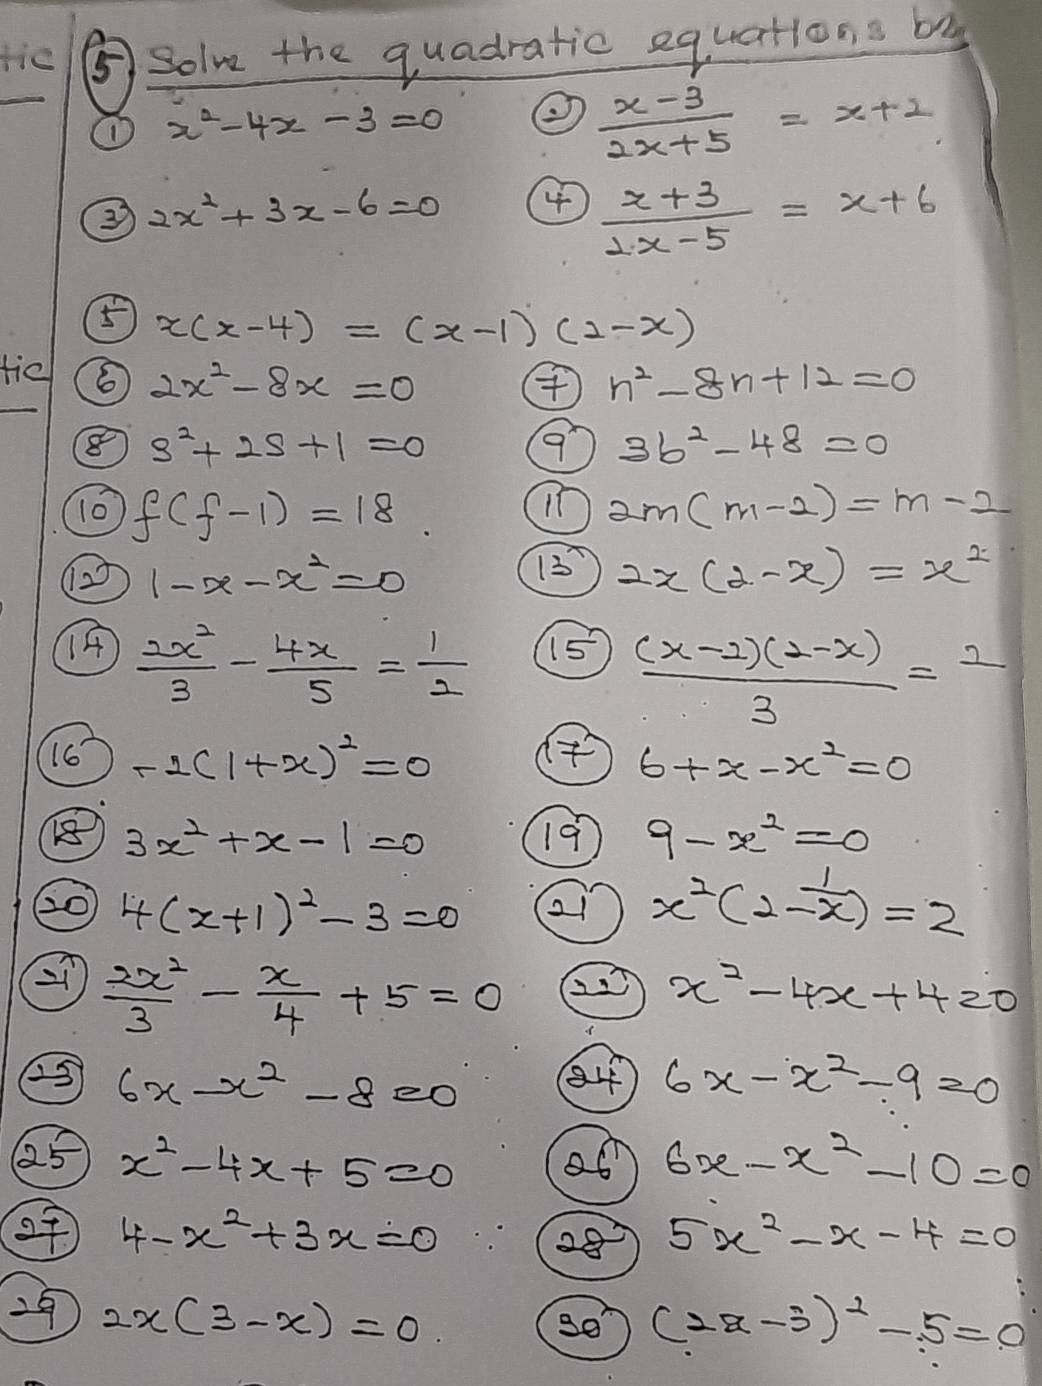 tic (5) Solve the quadratic equations by
(1) x² - 4x - 3 = 0 (2) (x - 3)/(2x + 5) = x + 2
(3) 2x² + 3x - 6 = 0 (4) (x + 3)/(2x - 5) = x + 6
(5) x(x - 4) = (x - 1)(2 - x)
tic (6) 2x² - 8x = 0 (7) n² - 8n + 12 = 0
(8) s² + 2s + 1 = 0 (9) 3b² - 48 = 0
(10) f(f - 1) = 18. (11) 2m(m - 2) = m - 2
(12) 1 - x - x² = 0 (13) 2x(2 - x) = x²
(14) 2x²/3 - 4x/5 = 1/2 (15) (x - 2)(2 - x)/3 = 2
(16) -2(1 + x)² = 0 (17) 6 + x - x² = 0
(18) 3x² + x - 1 = 0 (19) 9 - x² = 0
(20) 4(x + 1)² - 3 = 0 (21) x²(2 - 1/x) = 2
(21) 2x²/3 - x/4 + 5 = 0 (22) x² - 4x + 4 = 0
(23) 6x - x² - 8 = 0 (24) 6x - x² - 9 = 0
(25) x² - 4x + 5 = 0 (26) 6x - x² - 10 = 0
(27) 4 - x² + 3x = 0 (28) 5x² - x - 4 = 0
(29) 2x(3 - x) = 0. (30) (2x - 3)² - 5 = 0